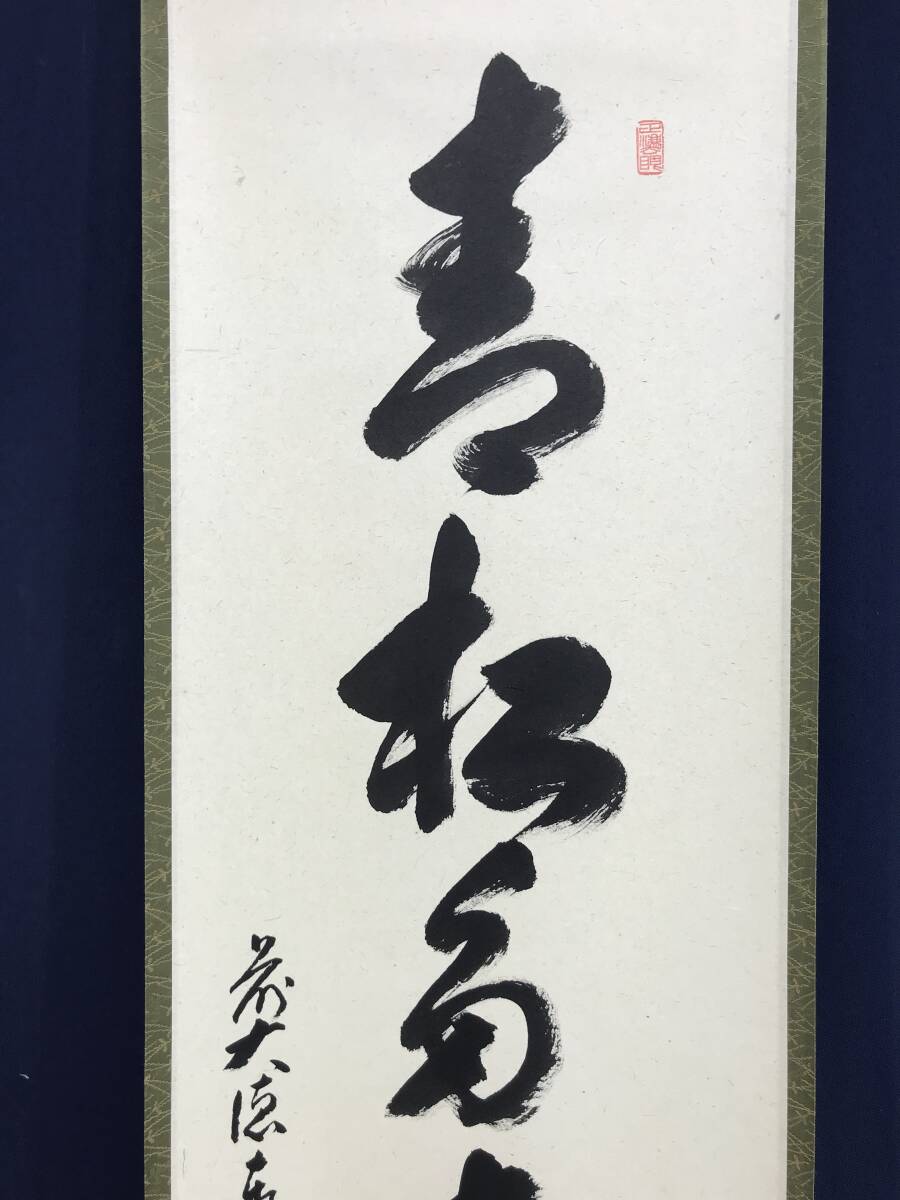 青松多
前大徳